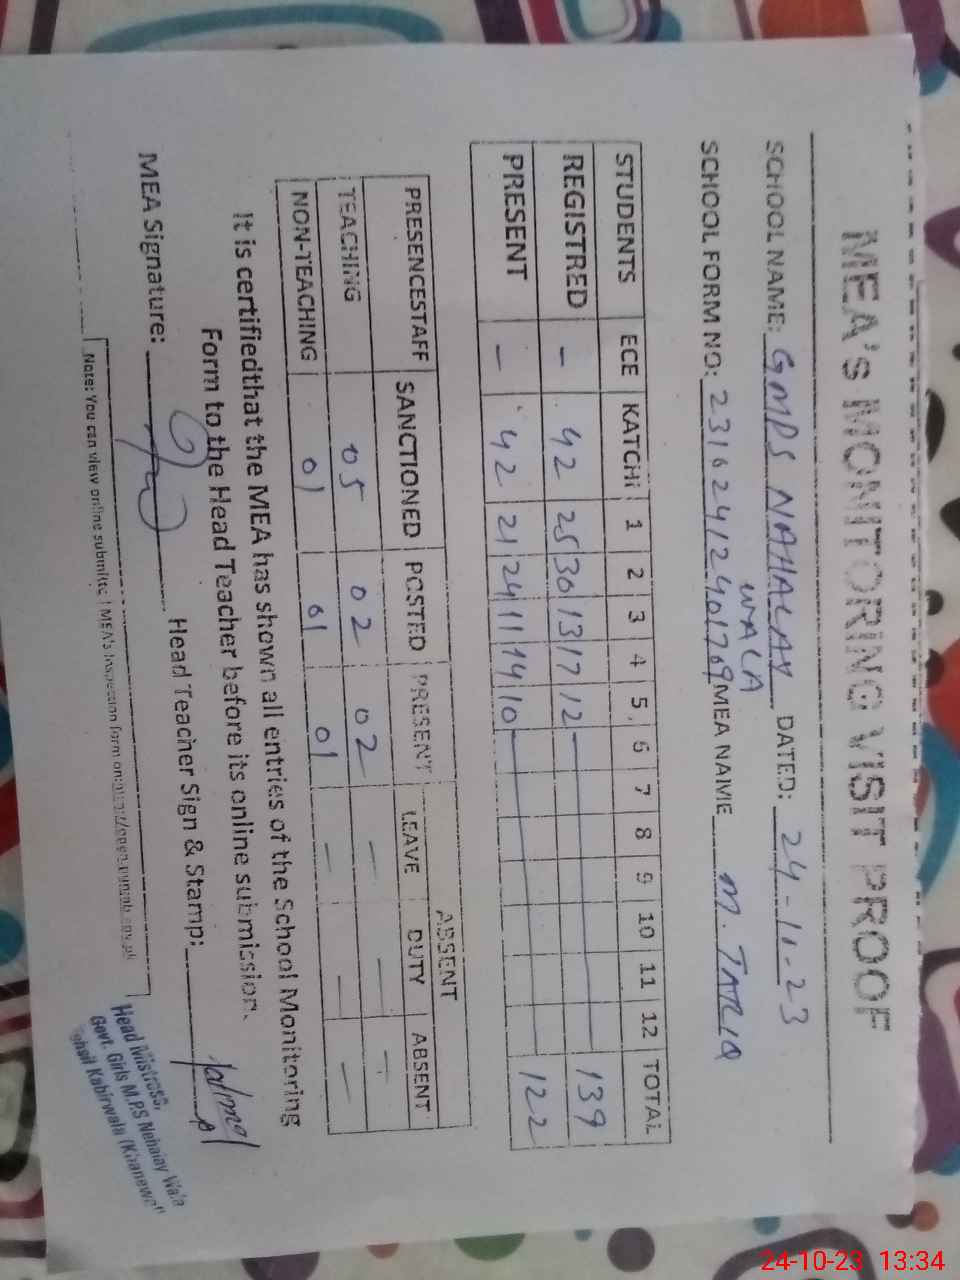 MEA's MONITORING VISIT PROOF
SCHOOL NAME: GMPS NAHALAY WALA DATED: 24-10-23
SCHOOL FORM NO: MEA NAME M. TARIQ
STUDENTS ECE KATCHI 1 2 3 4 5 6 7 8 9 10 11 12 TOTAL
REGISTRED – 42 25 30 13 17 12 – 139
PRESENT – 42 21 24 11 14 10 – 122
ABSENT
PRESENCESTAFF SANCTIONED POSTED PRESENT LEAVE DUTY ABSENT
TEACHING 05 02 02 – – –
NON-TEACHING 01 01 01 – – –
It is certifiedthat the MEA has shown all entries of the School Monitoring
Form to the Head Teacher before its online submission.
MEA Signature: Head Teacher Sign & Stamp:
Head Mistress,
Govt. Girls M.P.S Nehalay Wala
Tehsil Kabirwala (Khanewal)
Note: You can view online submitted MEA's Inspection form on:
24-10-23 13:34